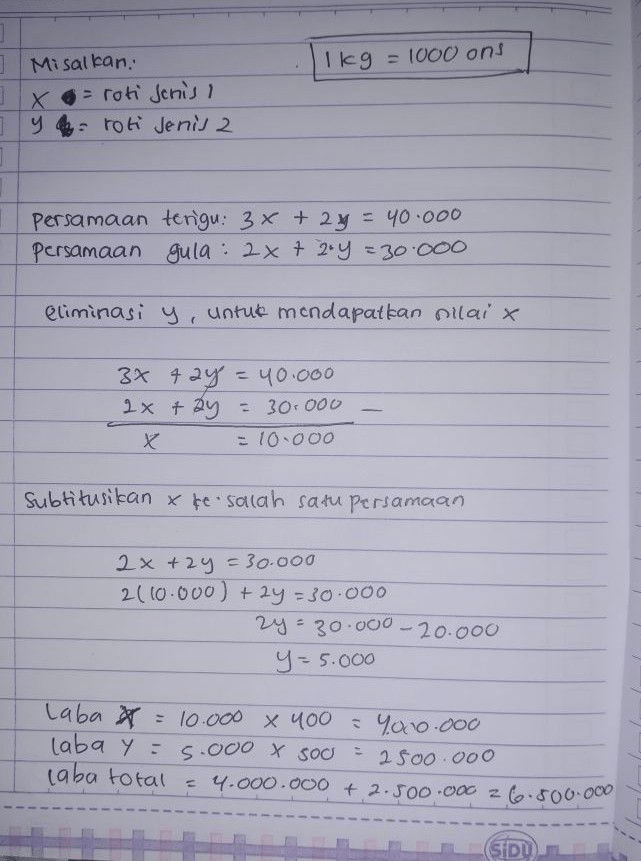 Misalkan:
1 kg = 1000 ons
x = roti Jenis 1
y = roti Jenis 2
Persamaan terigu: 3x + 2y = 40.000
Persamaan gula : 2x + 2y = 30.000
eliminasi y, untuk mendapatkan nilai x
3x + 2y = 40.000
2x + 2y = 30.000 —
x = 10.000
Subtitusikan x ke salah satu persamaan
2x + 2y = 30.000
2(10.000) + 2y = 30.000
2y = 30.000 - 20.000
y = 5.000
Laba x = 10.000 x 400 = 4.000.000
laba y = 5.000 x 500 = 2500.000
laba total = 4.000.000 + 2.500.000 = 6.500.000
SiDU